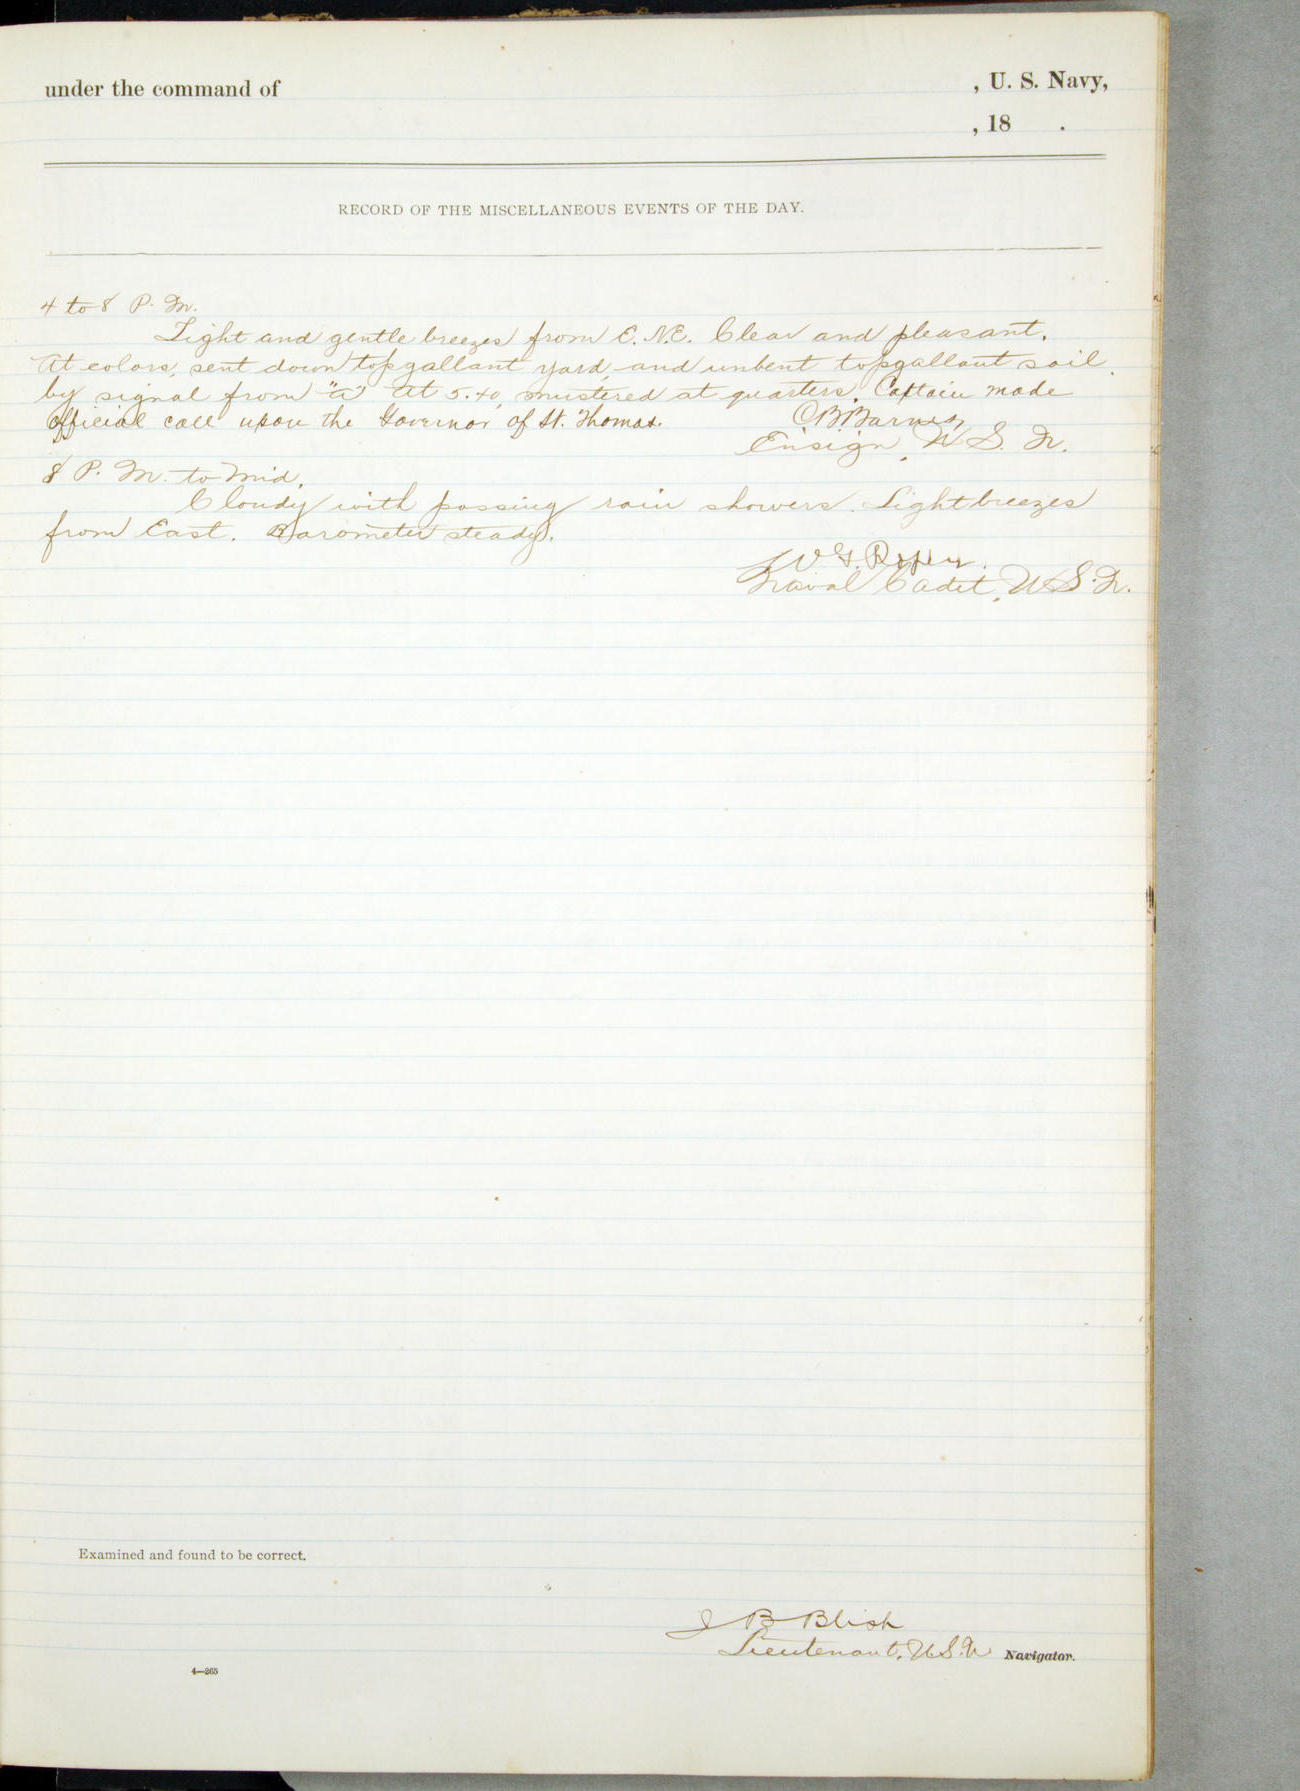 under the command of , U. S. Navy,
, 18 .
RECORD OF THE MISCELLANEOUS EVENTS OF THE DAY.
4 to 8 P. M.
Light and gentle breezes from E. N.E. Clear and pleasant.
At colors, sent down topgallant yard, and unbent topgallant sail,
by signal from "a" At 5.40, mustered at quarters. Captain made
official call upon the Governor of St. Thomas. C B Barnes
Ensign, U. S. N.
8 P. M. to Mid.
Cloudy with passing rain showers. Light breezes
from East. Barometer steady.
W G. Roper.
Naval Cadet, U.S.N.
Examined and found to be correct.
J B Blish
Lieutenant, U.S.N Navigator.
4—265